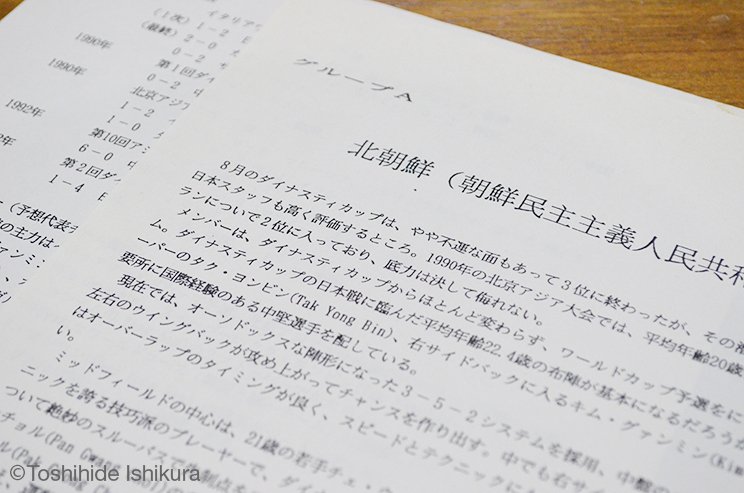 イタリア
(1次) 1－2
(最終) 2－0
0－2
1990年 第1回ダイ
0－2
1990年 北京アジア
1－2
1－0
1992年 第10回アジ
6－0
第2回ダイ
1－4
(予想代表
の主力は
グループA
北朝鮮（朝鮮民主主義人民共和
8月のダイナスティカップは、やや不運な面もあって3位に終わったが、その潜
日本スタッフも高く評価するところ。1990年の北京アジア大会では、平均年齢20歳
ランについで2位に入っており、底力は決して侮れない。
メンバーは、ダイナスティカップからほとんど変わらず、ワールドカップ予選をに
ム。ダイナスティカップの日本戦に臨んだ平均年齢22.4歳の布陣が基本になるだろうが
ーパーのタク・ヨンビン(Tak Yong Bin)、右サイドバックに入るキム・グァンミン(Kim
要所に国際経験のある中堅選手を配している。
現在では、オーソドックスな陣形になった3－5－2システムを採用、中盤の
左右のウイングバックが攻め上がってチャンスを作り出す。中でも右サ
はオーバーラップのタイミングが良く、スピードとテクニックに
い。
ミッドフィールドの中心は、21歳の若手チェ・ウ
ニックを誇る技巧派のプレーヤーで、ダイナ
チョル(Pan Gwang
ついて絶妙のスルーパスで
©Toshihide Ishikura